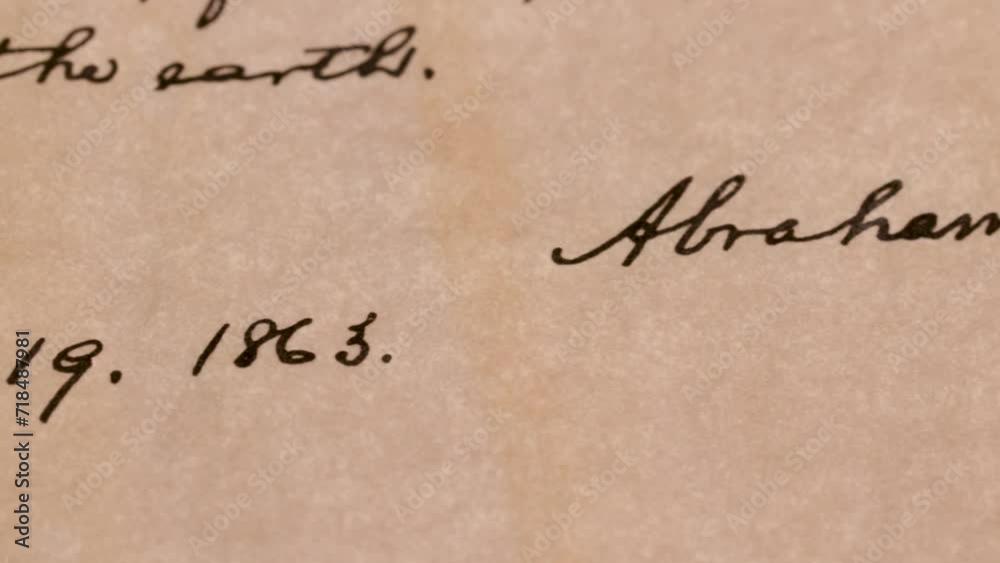 the earth.
Abraham
19. 1863.
Adobe Stock | #718487981